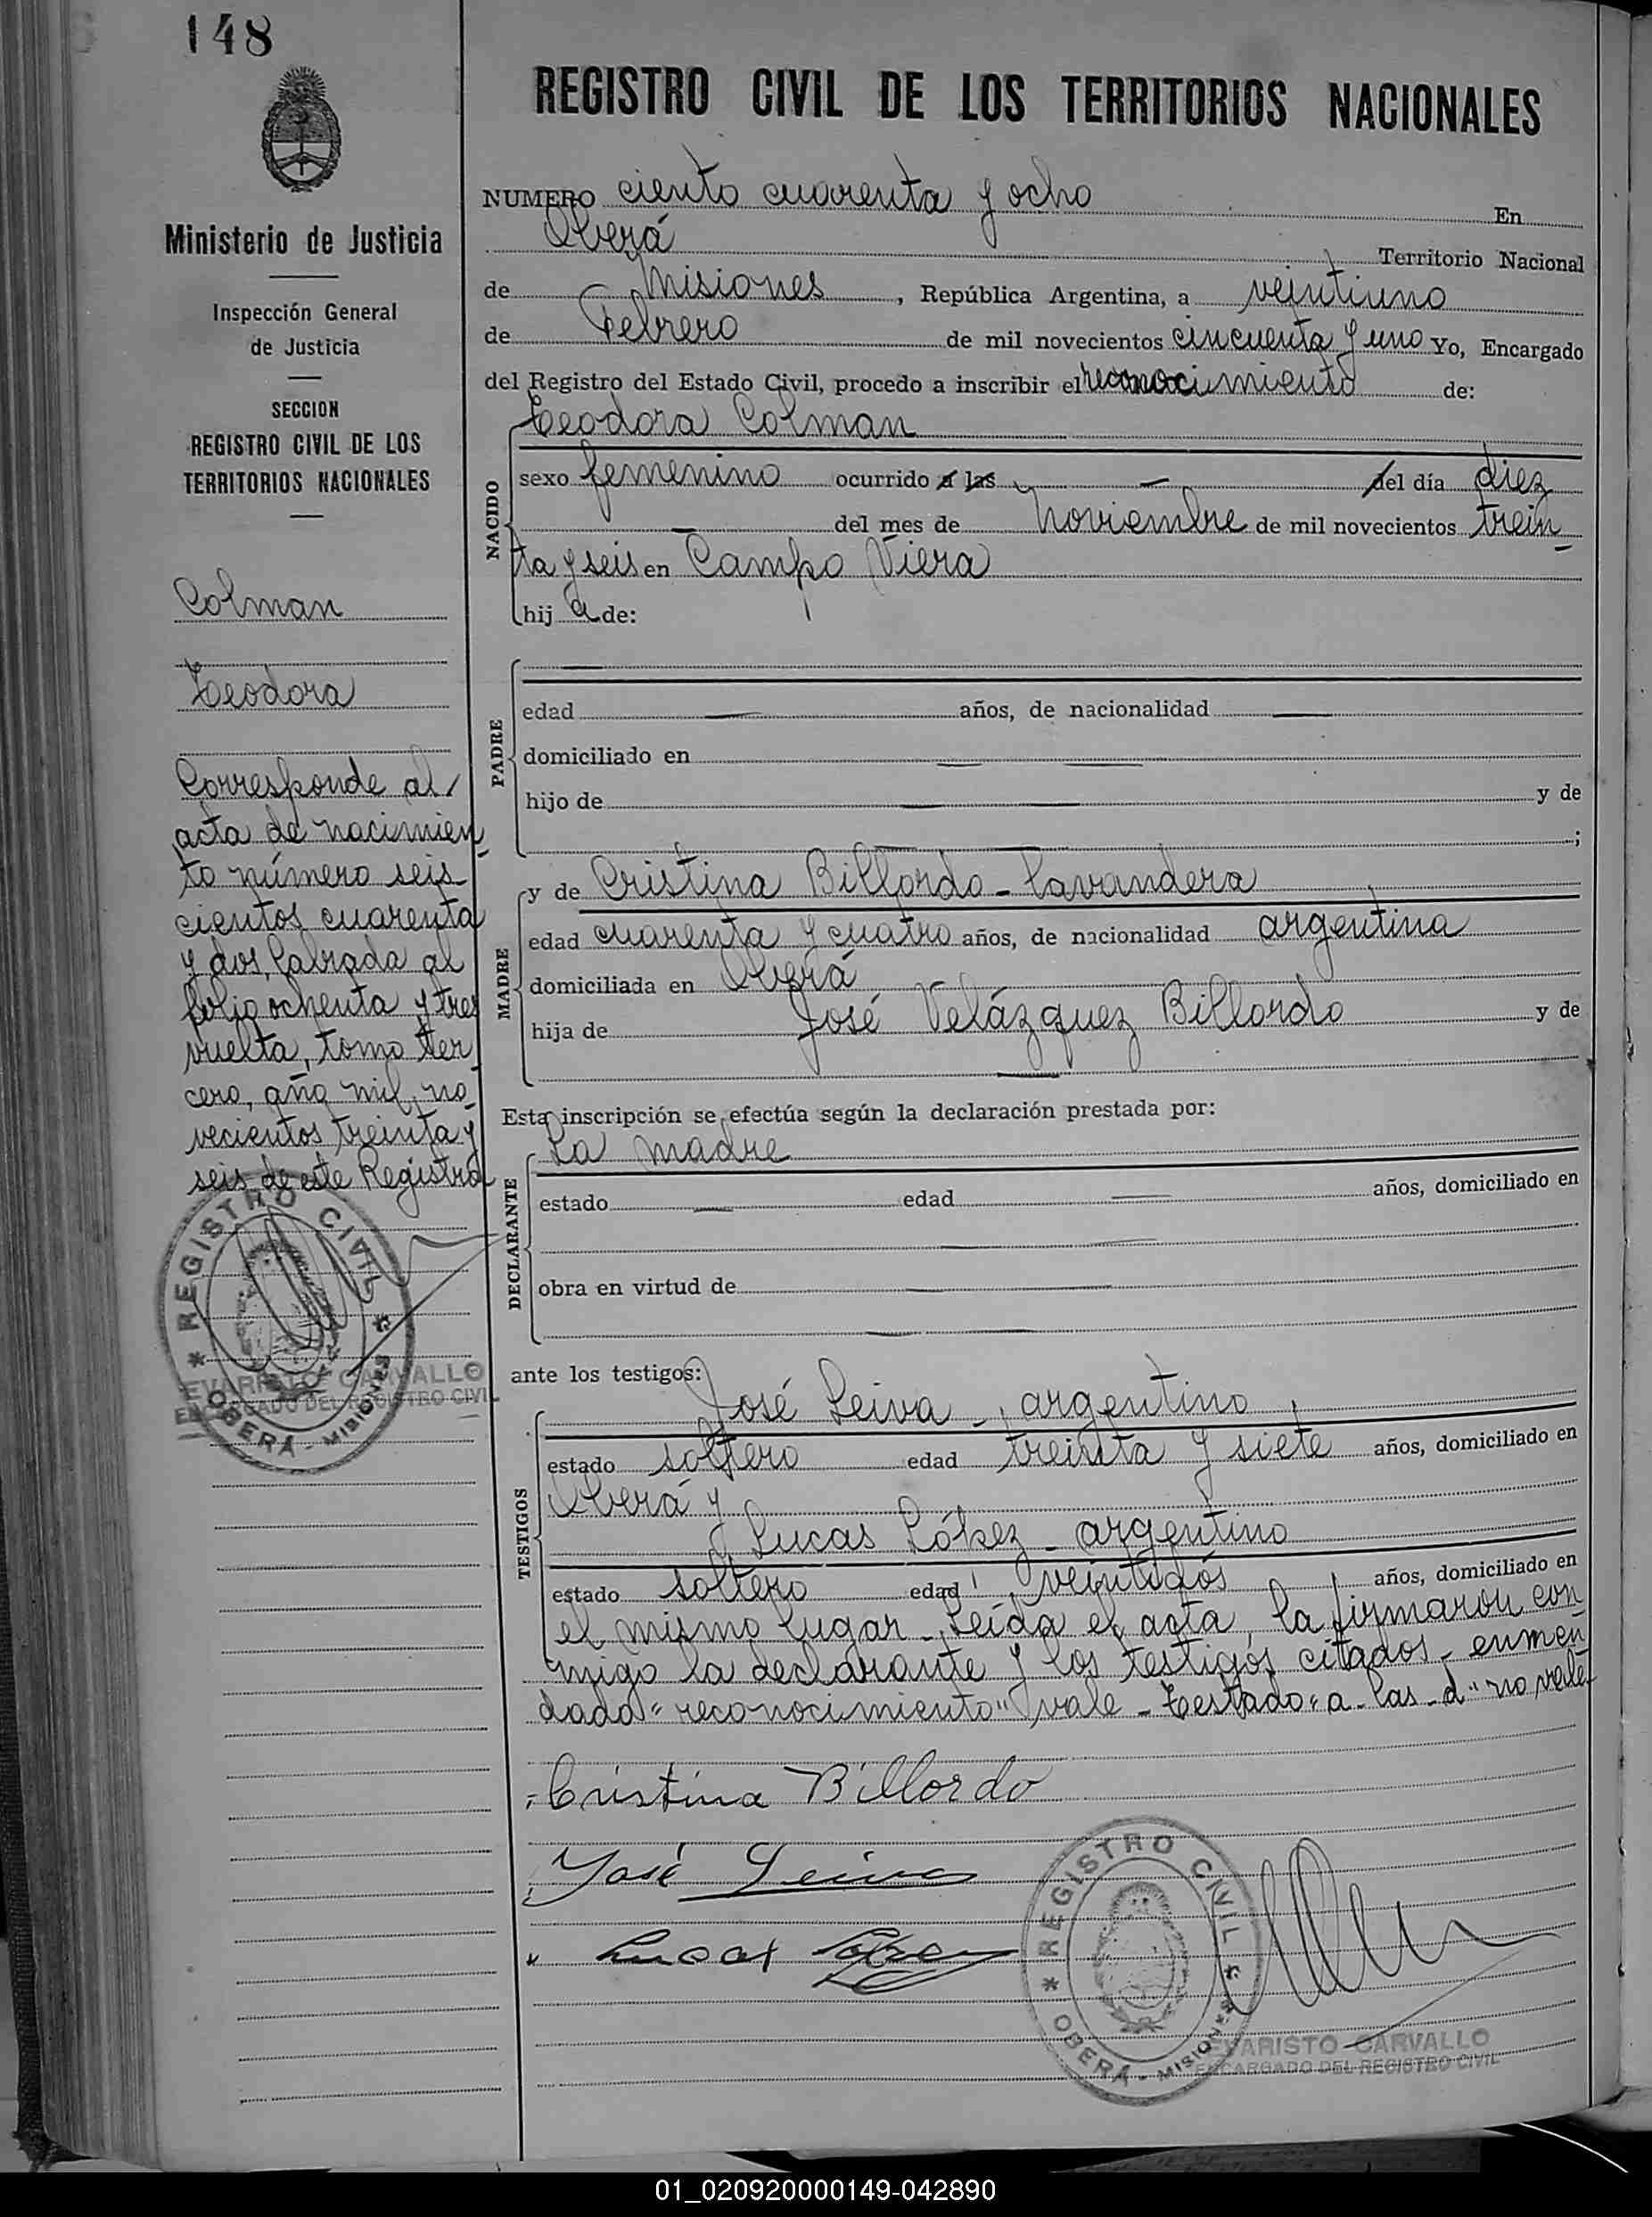 148
REGISTRO CIVIL DE LOS TERRITORIOS NACIONALES
Ministerio de Justicia
Inspección General
de Justicia
SECCION
REGISTRO CIVIL DE LOS
TERRITORIOS NACIONALES
Colman
Teodora
Corresponde al
acta de nacimien
to número seis
cientos cuarenta
y dos, labrada al
folio ochenta y tres
vuelta, tomo ter
cero, año mil no
vecientos treinta y
seis de este Registro
REGISTRO CIVIL
OBERÁ - MISIONES
EVARISTO CARVALLO
ENCARGADO DEL REGISTRO CIVIL
NUMERO ciento cuarenta y ocho En
Oberá Territorio Nacional
de Misiones, República Argentina, a veintiuno
de Febrero de mil novecientos cincuenta y uno Yo, Encargado
del Registro del Estado Civil, procedo a inscribir el reconocimiento de:
NACIDO
Teodora Colman
sexo femenino ocurrido a las — del día diez
— del mes de Noviembre de mil novecientos trein
ta y seis en Campo Viera
hija de:
PADRE
—
edad — años, de nacionalidad —
domiciliado en — —
hijo de — — y de
— — ;
MADRE
y de Cristina Billordo - lavandera
edad cuarenta y cuatro años, de nacionalidad argentina
domiciliada en Oberá
hija de José Velázquez Billordo y de
—
Esta inscripción se efectúa según la declaración prestada por:
DECLARANTE
La madre
estado — edad — años, domiciliado en
— —
obra en virtud de — —
— —
ante los testigos:
TESTIGOS
José Leiva -, argentino,
estado soltero edad treinta y siete años, domiciliado en
Oberá y
Lucas López - argentino
estado soltero edad veintidós años, domiciliado en
el mismo lugar - Leída el acta, la firmaron con
migo la declarante y los testigos citados - enmen
dado "reconocimiento" vale - Testado "a - las - d" no vale
Cristina Billordo
José Leiva
Lucas López
REGISTRO CIVIL
OBERÁ - MISIONES
EVARISTO CARVALLO
ENCARGADO DEL REGISTRO CIVIL
01_020920000149-042890